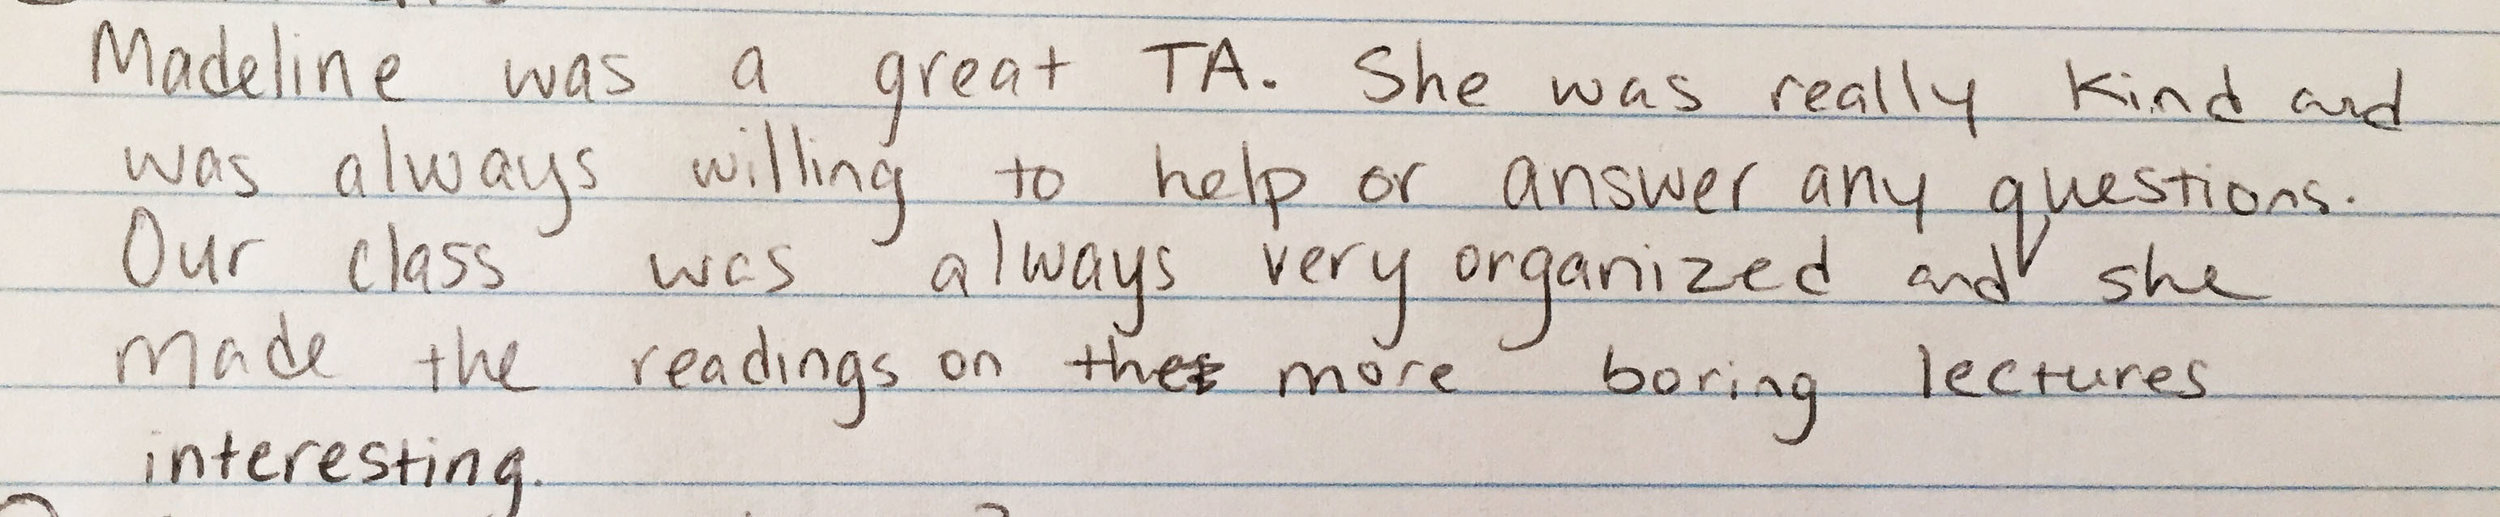 Madeline was a great TA. She was really kind and
was always willing to help or answer any questions.
Our class was always very organized and she
made the readings on the more boring lectures
interesting.